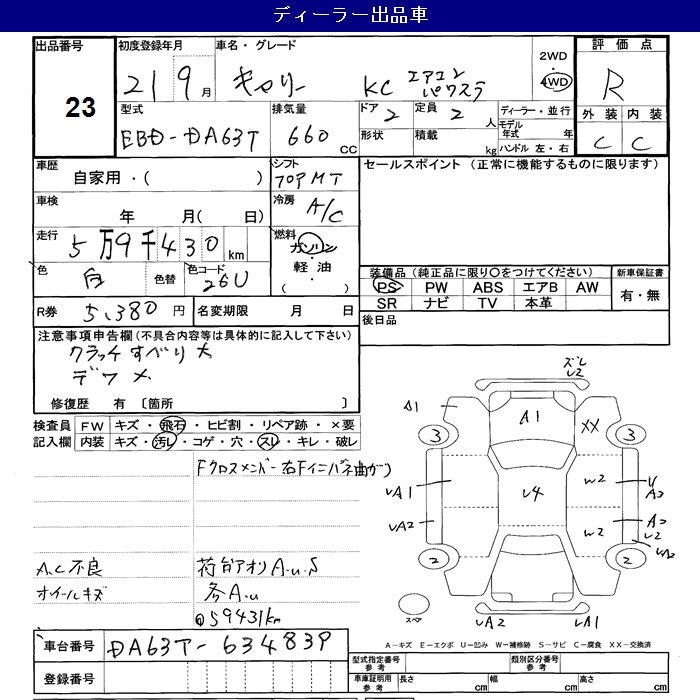 ディーラー出品車
出品番号 初度登録年月 車名・グレード 評価点
23
21 9月 キャリー KC エアコン パワステ
2WD
4WD
R
型式 排気量 ドア 定員 ディーラー・並行 外装 内装
EBD-DA63T 660CC 2 2人
モデル年式 年
形状 積載 kg ハンドル 左・右
C C
車歴 シフト セールスポイント (正常に機能するものに限ります)
自家用・( ) フロアMT
車検 冷房
年 月( 日) A/C
走行 燃料
5万9千430km ガソリン・軽油・( )
色 色替 色コード
白 26U
装備品(純正品に限り〇をつけてください) 新車保証書
PS PW ABS エアB AW 有・無
SR ナビ TV 本革
R券 5,380円 名変期限 月 日
後日品
注意事項申告欄(不具合内容等は具体的に記入して下さい)
クラッチすべり大
デフ メ
修復歴 有 〔箇所 〕
検査員 FW キズ・飛石・ヒビ割・リペア跡・×要
記入欄 内装 キズ・汚レ・コゲ・穴・スレ・キレ・破レ
Fクロスメンバー右Fインパネ曲がり
A.C不良 荷台アオリA.U.S
ホイールキズ 各A.U
@59431km
ズレ
U2
A1
A1
XX
3
3
UA1
U4
W2
U
A2
UA2
W2
A2
U2
UA2
2
2
スペア
UA2
UA1
A-キズ E-エクボ U-凹み W-補修跡 S-サビ C-腐食 XX-交換済
車台番号 DA63T-634839
登録番号
型式指定番号 参考 類別区分番号 参考
車庫証明用 参考 長さ cm 幅 cm 高さ cm